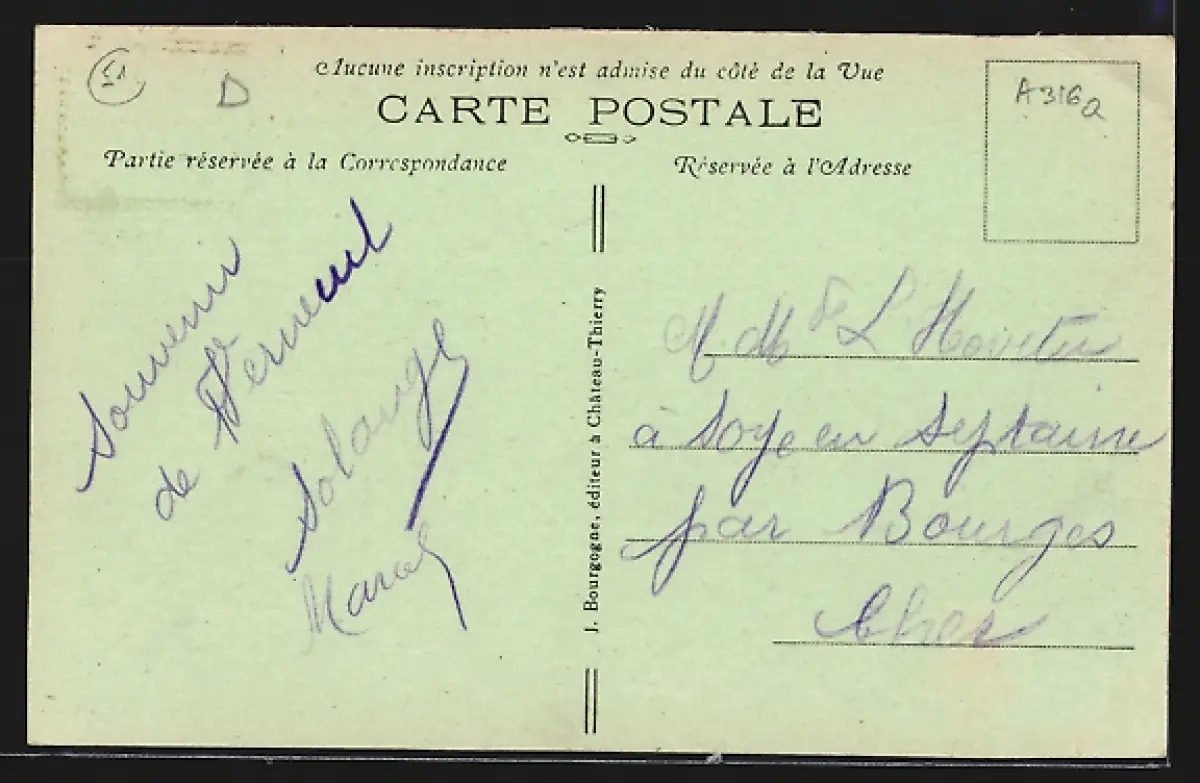 51
D
Aucune inscription n'est admise du côté de la Vue
CARTE POSTALE
A316a
Partie réservée à la Correspondance
Réservée à l'Adresse
Souvenir
de Verneuil
Solange
Marcel
J. Bourgogne, éditeur à Château-Thierry
M. Mde L
à Soye en Septaine
par Bourges
Cher